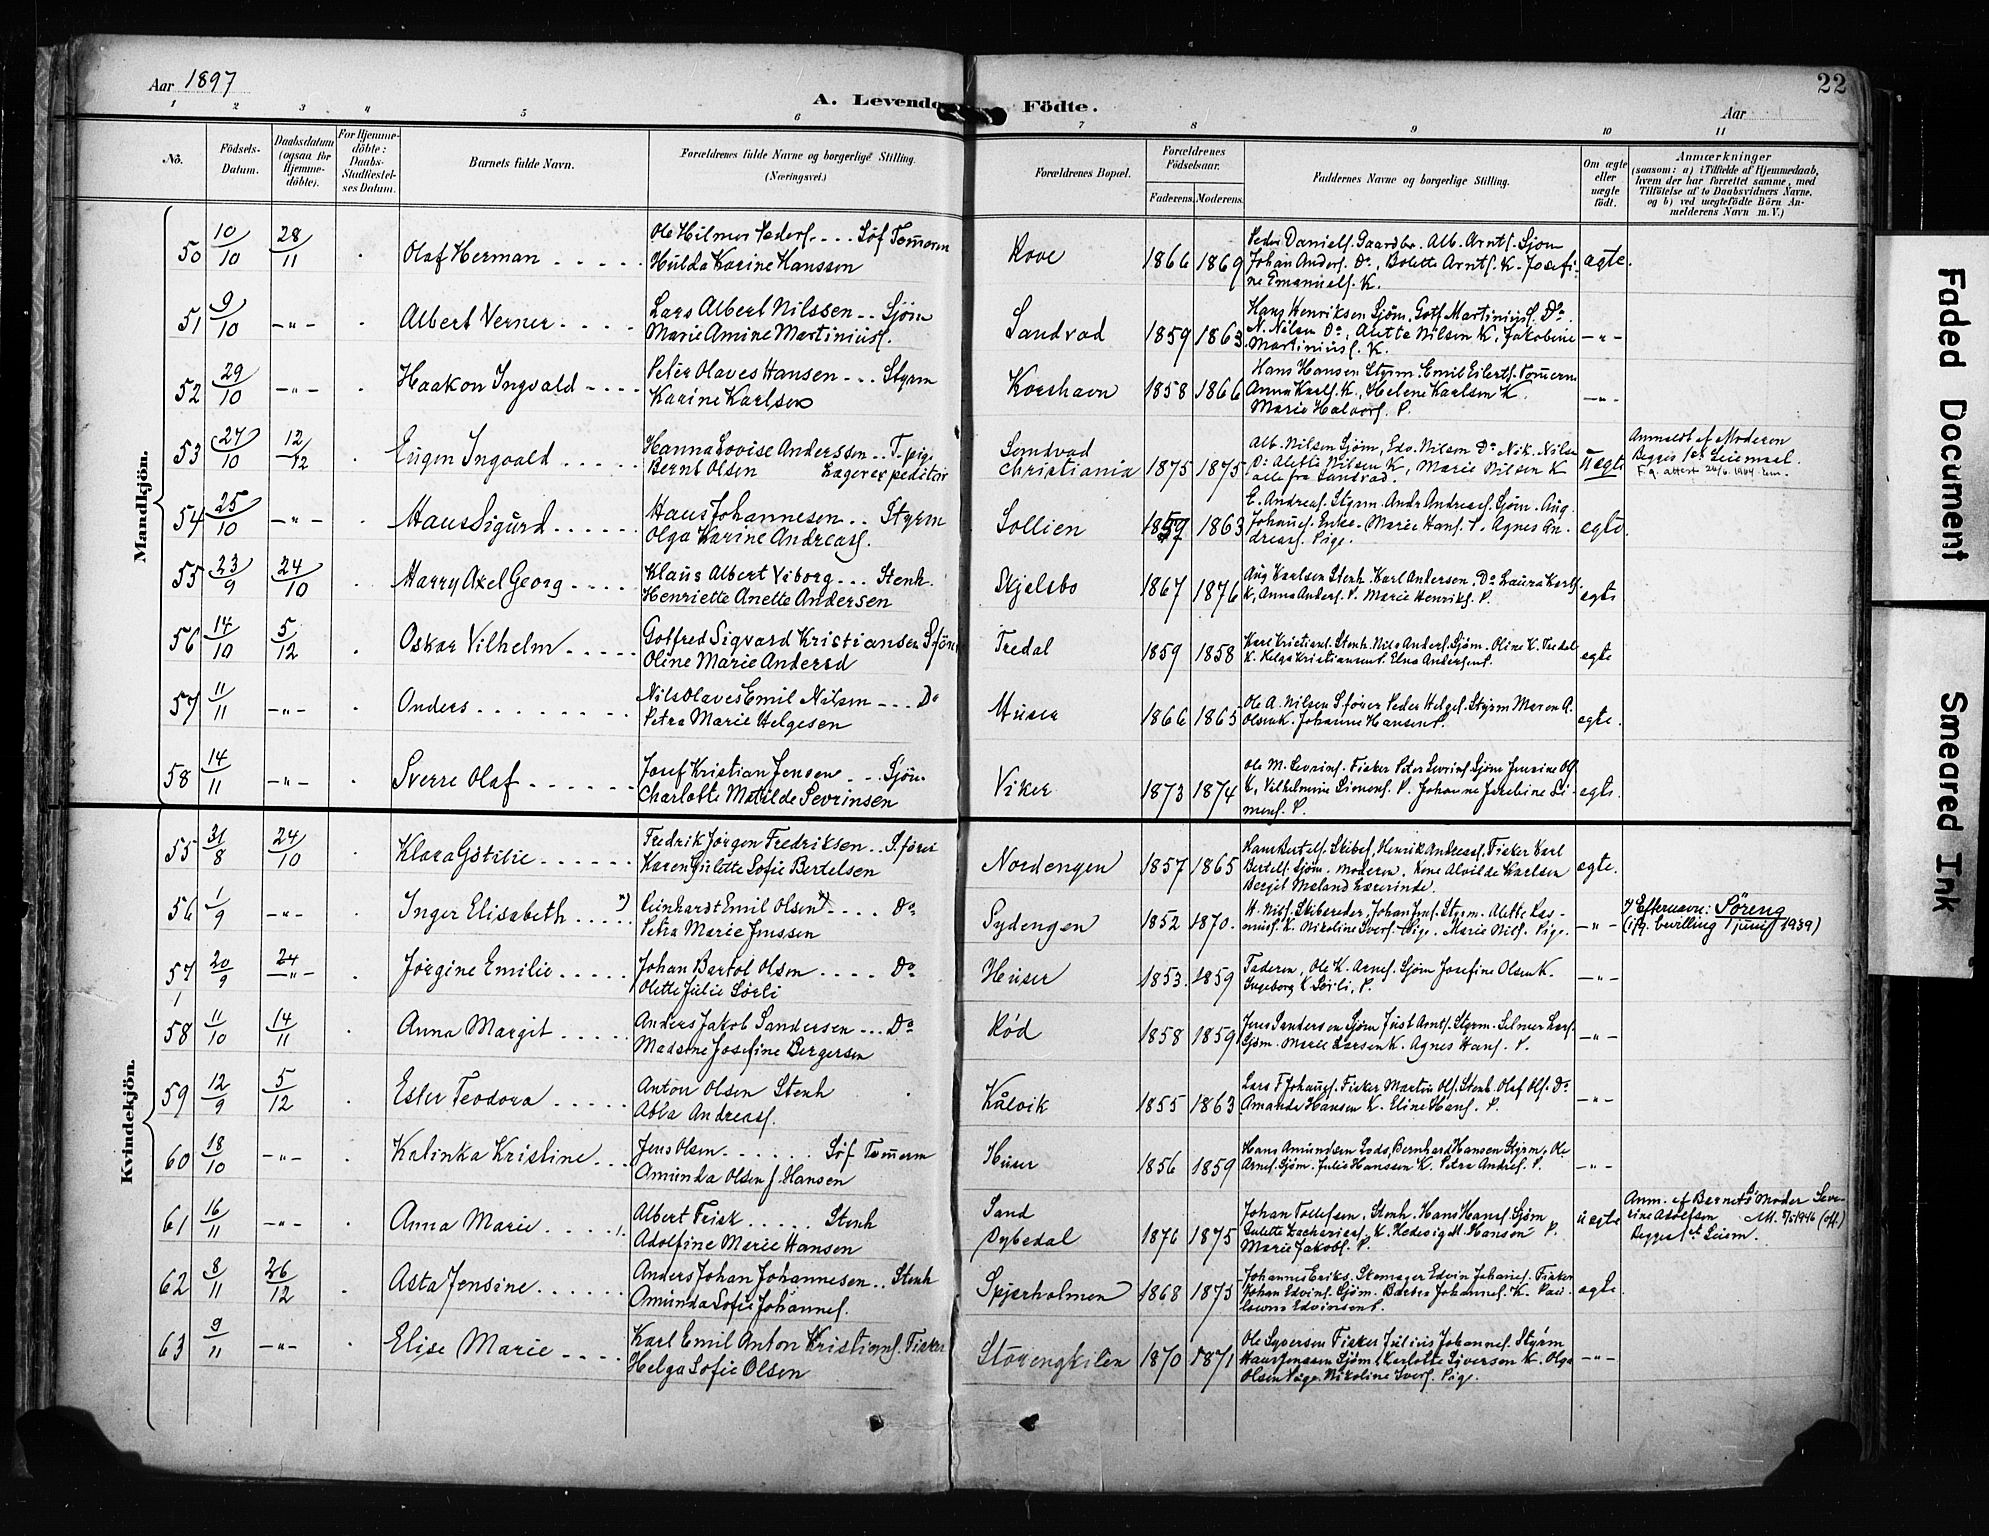 Aar 1897
A. Levende Födte.
22
Aar
1 2 3 4 5 6 7 8 9 10 11
No.
Födsels-Datum.
Daabsdatum (ogsaa for Hjemme-döbte).
For Hjemme-döbte: Daabs-Stadfæstel-ses Datum.
Barnets fulde Navn.
Forældrenes fulde Navne og borgerlige Stilling. (Næringsvei.)
Forældrenes Bopæl.
Forældrenes Födselsaar.
Faderens. Moderens.
Faddernes Navne og borgerlige Stilling.
Om ægte eller uægte födt.
Anmærkninger
(saasom: a) i Tilfælde af Hjemmedaab,
hvem der har forrettet samme, med
Tilföielse af to Daabsvidners Navne,
og b) ved uægtefödte Börn An-
melderens Navn m. V.)
Mandkjön.
50 10/10 28/11 Olaf Herman
Ole Hilmer Peders. Söf Tömmerm
Hulda Karine Hanssen
Rove 1866 1869
Peder Daniels. Gaardbr. Alb. Arnts. Sjöm
Johan Anders. Do, Bolette Arnts. K. Josefi-
ne Emanuels. K.
ægte.
51 9/10 -"- Albert Verner
Lars Albert Nilssen Sjöm
Marie Amine Martiniuss.
Sandvad 1859 1863
Hans Henriksen Sjöm, Gotf Martiniuss. Do.
N. Nilsen Do, Alette Nilsen K. Jakobine
Martiniuss. K.
-"-
52 29/10 -"- Haakon Ingvald
Peter Olaves Hansen Styrm
Karine Karlsen
Korshavn 1858 1866
Hans Hansen Styrm. Emil Eilerts. Tömerm
Anna Karls. K., Helene Karlsen K.
Marie Halvors. P.
-"-
53 27/10 12/12 Eugen Ingvald
Hanna Lovise Anderssen T. pig.
Bernt Olsen Lagerexpeditör
Sandvad
Christiania 1875 1875
Alb. Nilsen Sjöm, Edv. Nilsen Do Nik. Nilsen
Do Alette Nilsen K, Marie Nilsen K
alle fra Sandvad.
uægte
Anmeldt af Moderen
Begges 1st Leiemaal.
54 25/10 -"- Hans Sigurd
Hans Johannesen Styrm
Olga Karine Andreass.
Sollien 1857 1863
E. Andreas. Styrm. Andr Andreass. Sjöm. Aug.
Johanes. Enke. Marie Hans. P. Agnes An-
dreass. Pige.
ægte.
55 23/9 24/10 Harry Axel Georg
Klaus Albert Viborg Stenh.
Henriette Anette Andersen
Skjelsbo 1867 1876
Aug Karlsen Stenh. Karl Andersen, Do Laura Karls.
K, Anna Anders. P. Marie Henriks. P.
ægte
56 14/10 5/12 Oskar Vilhelm
Gotfred Sigvard Kristiansen Sjöm
Oline Marie Andersd
Tredal 1859 1858
Karl Kristians. Stenh. Nils Anders. Sjöm. Oline K. Tredal
K. Helga Kristiansen P. Elna Andersen P.
ægte
57 11/11 -"- Anders
Nils Olaves Emil Nilsen Do
Petra Marie Helgesen
Huser 1866 1865
Ole A. Nilsen S.förer Peder Helges. Styrm Maren A.
Olsen K. Johanne Hansen P.
ægte.
58 14/11 -"- Sverre Olaf
Josef Kristian Jensen Sjöm.
Charlotte Matilde Sevrinsen
Viker 1873 1874
Ole M. Sevrins. Fisker Peter Sevrins. Sjöm Jensine Ols
K, Vilhelmine Simons. P. Johanne Josefine Si-
mons. P.
ægte.
Kvindekjön.
55 31/8 24/10 Klara
Fredrik Jörgen Fredriksen S.förer
Karen Gulette Sofie Bertelsen
Nordengen 1857 1865
Hans Bertels. Skibsf, Henrik Andreass. Fisker Karl
Bertels. Sjöm. Moderen, Kone Alvilde Karlsen
Bergit Meland Lærerinde.
ægte.
56 1/9 -"- Inger Elisabeth x)
Reinhardt Emil Olsen x) Do
Petra Marie Jenssen
Sydengen 1852 1870.
H. Nils. Skibsreder, Johan Jens. Styrm. Alette Ras-
mus. K. Nikoline Ivers. Pige. Marie Nils. Pige.
-"-
x) Efternavn: Söreng
(ifg. bevilling juni 1939)
57 20/9 24/-"- Jörgine Emilie
Johan Bertol Olsen Do
Olette Julie Sörli
Huser 1853. 1859
Faderen, Ole K. Arnes. Sjöm Josefine Olsen K.
Ingeborg K Sörli, P.
-"-
58 11/10 14/11 Anna Margit
Anders Jakob Sandersen Do
Madsine Josefine Bergersen
Röd 1858 1859
Jens Sandersen Sjöm Just Arnts. Styrm. Selmer Lars.
Sjöm. Marie Larsen K. Agnes Hans. P.
-"-
59 12/9 5/12 Ester Teodora
Anton Olsen Stenh
Abla Andreass.
Kålvik 1855 1863
Lars F Johanes. Fisker Martin Ols. Stenh. Olaf Ols. Do
Amanda Hansen K. Eline Hans. P.
-"-
60 18/10 -"- Kalinka Kristine
Jens Olsen Söf Tömerm
Amunda Olsen f. Hansen
Huser 1856 1859
Hans Amundsen Lods, Bernhard Hansen Styrm, Ole
Arnes. Sjöm. Julie Hanssen K. Petra Andres. P.
-"-
61 16/11 -"- Anna Marie
Albert Frisk Stenh
Adolfine Marie Hansen
Sand
Dybedal 1876 1875
Johan Tollefsen, Stenh. Hans Hans. Sjöm
Gulette Zacharias. K. Hedevig M. Hansen P.
Marie Jakobs. P.
uægte
Anm. af Barnets Moder Seve-
rine Adolfsen
Begges 1st Leiem.
62 8/11 26/12 Asta Jensine
Anders Johan Johannesen Stenh
Amunda Sofie Johannes.
Spjærholmen 1868 1875
Johannes Eriks. Stenhager Edvin Johanes. Fisker
Johan Edvins. Sjöm. Barbra Johannes. K. Pau-
Edvinsen P.
ægte.
63 9/11 -"- Elise Marie
Karl Emil Anton Kristians. Fisker
Helga Sofie Olsen
Storengkilen 1870 1871
Ole Syversen Fisker Julius Johannes. Styrm
Hans Jenssen Sjöm. Karlotte Syversen K. Olga
Olsen Pige. Nikoline Ivers. Pige.
-"-
Faded Document
Smeared Ink